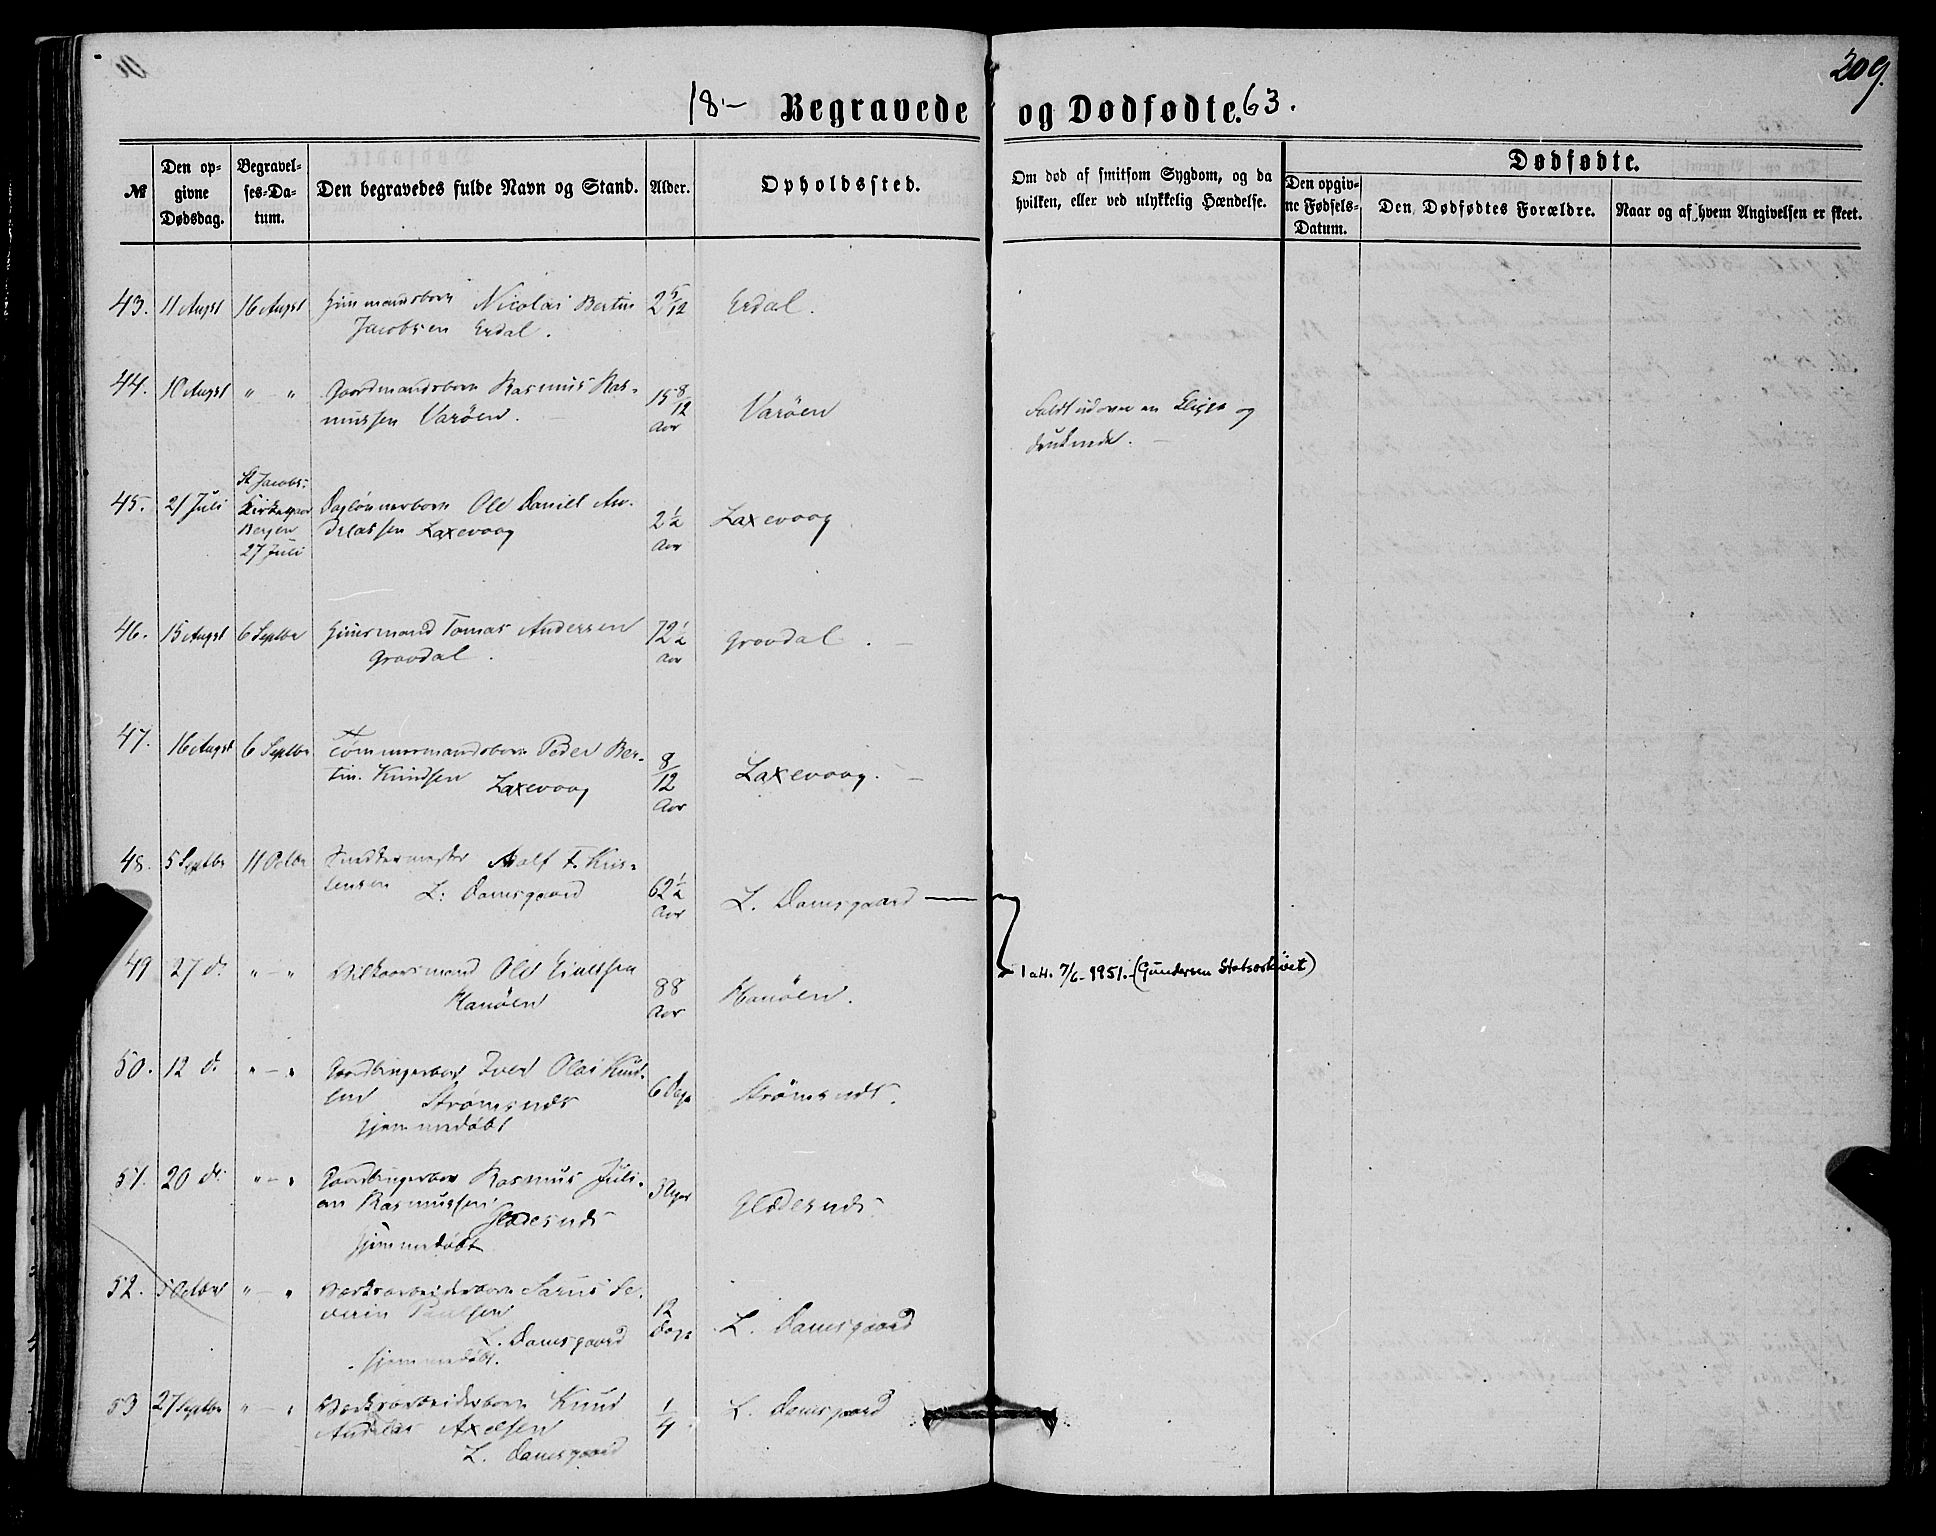 209.
18- Begravede og Dødfødte. 63.
№
Den opgivne Dødsdag.
Begravelses-Datum.
Den begravedes fulde Navn og Stand.
Alder.
Opholdssted.
Om død af smitsom Sygdom, og da hvilken, eller ved ulykkelig Hændelse.
Dødfødte.
Den opgivne Fødsels-Datum.
Den Dødfødtes Forældre.
Naar og af hvem Angivelsen er skeet.
43. 11 Augst 16 Augst Huusmandsbarn Nicolai Bertin 2 5/12 Erdal.
Jacobsen Erdal.
44. 10 Augst " - " Gaardmandsbarn Rasmus Ras- 15 8/12 Aar Varöen
mussen Varöen.
Faldt ud over en Klippe og
druknede.
45. 21 Juli St Jacobs- Kirkegaard Bergen 27 Juli
Daglönnerbarn Ole Daniel An- 2 1/2 Aar Laxevaag
dreassen Laxevaag
46. 15 Augst 6 Septbr Huusmand Tomas Andersen 72 1/2 Aar Gravdal.
Gravdal.
47. 16 Augst 6 Septbr Tömmermandsbarn Peder Ber- 8/12 Aar Laxevaag.
tin Knudsen Laxevaag
48. 5 Septbr 11 Octbr Adolf F. Kris- 62 1/2 Aar L. Damsgaard
tensen L. Damsgaard
49 27 d. " - " Vilkaarsmand Ole 88 Aar Hanöen.
Hanöen
1 att. 7/6-1951. (Gundersen Statsarkivet)
50. 12 d. " - " Iver Olai Knud- 6 Dage Strömsnes.
sen Strömsnes
hjemmedöbt
51. 20 d. " - " Rasmus Juli- Gledesnes
an Rasmussen Gledesnes
hjemmedöbt
52. 5 Octbr " - " Værksarbeiderbarn Se- 12 Dage L. Damsgaard
verin Paulsen
L. Damsgaard
hjemmedöbt.
53 27 Septbr " - " Værksarbeiderbarn Knud 1/4 L. Damsgaard
Andreas Axelsen
L. Damsgaard